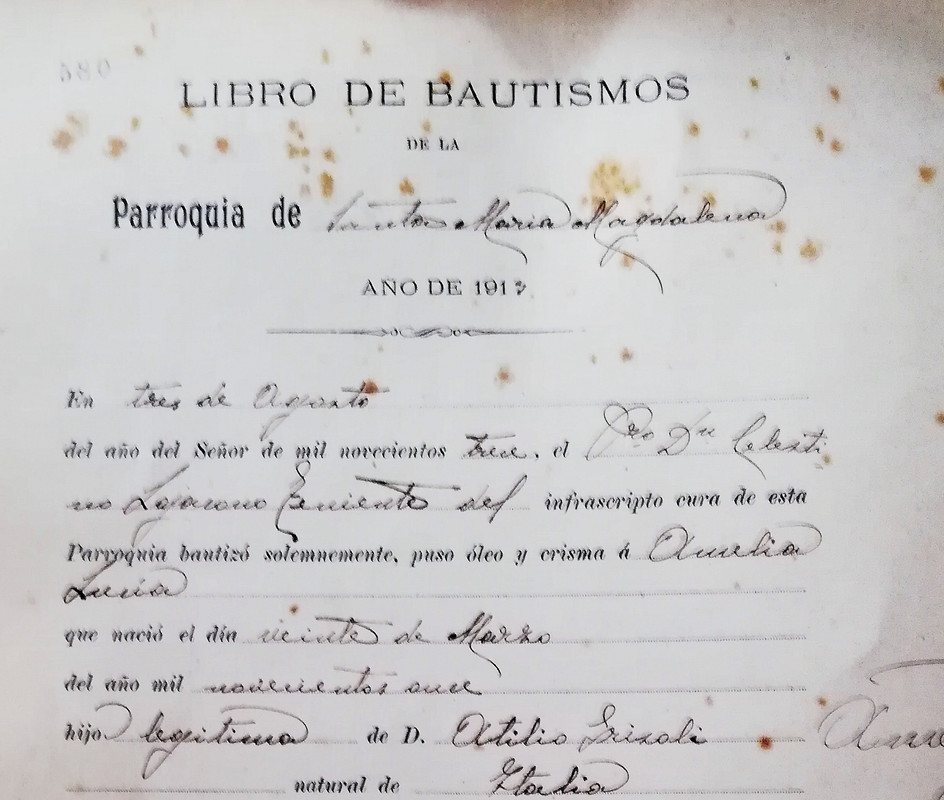 580
LIBRO DE BAUTISMOS
DE LA
Parroquia de Santa Maria Magdalena
AÑO DE 1913
En tres de Agosto
del año del Señor de mil novecientos trece, el Pro. Dn Celesti
no Lojacono Teniente del infrascripto cura de esta
Parroquia bautizó solemnemente, puso óleo y crisma á Amelia
Lucia
que nació el día veinte de Marzo
del año mil novecientos once
hijo legitima de D. Atilio Grisoli
natural de Italia